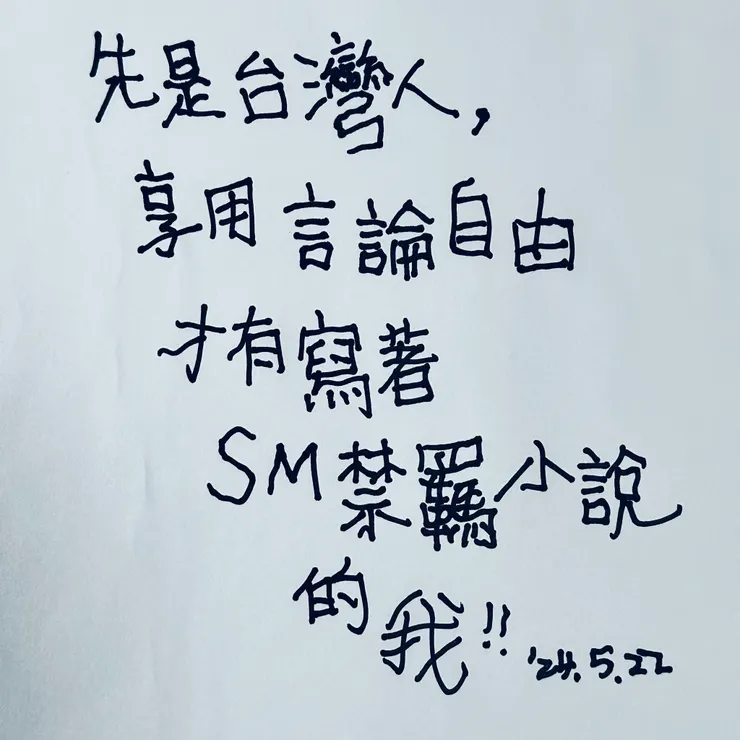 先是台灣人,
享用言論自由
才有寫著
SM禁羈小說
的我!!
'24.5.22